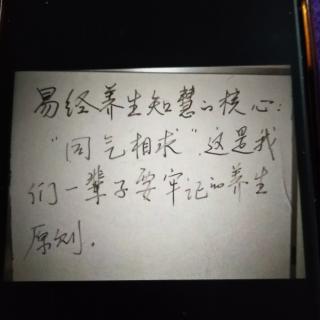 易经养生知慧的核心:
"同气相求",这是我
们一辈子要牢记的养生
原则.